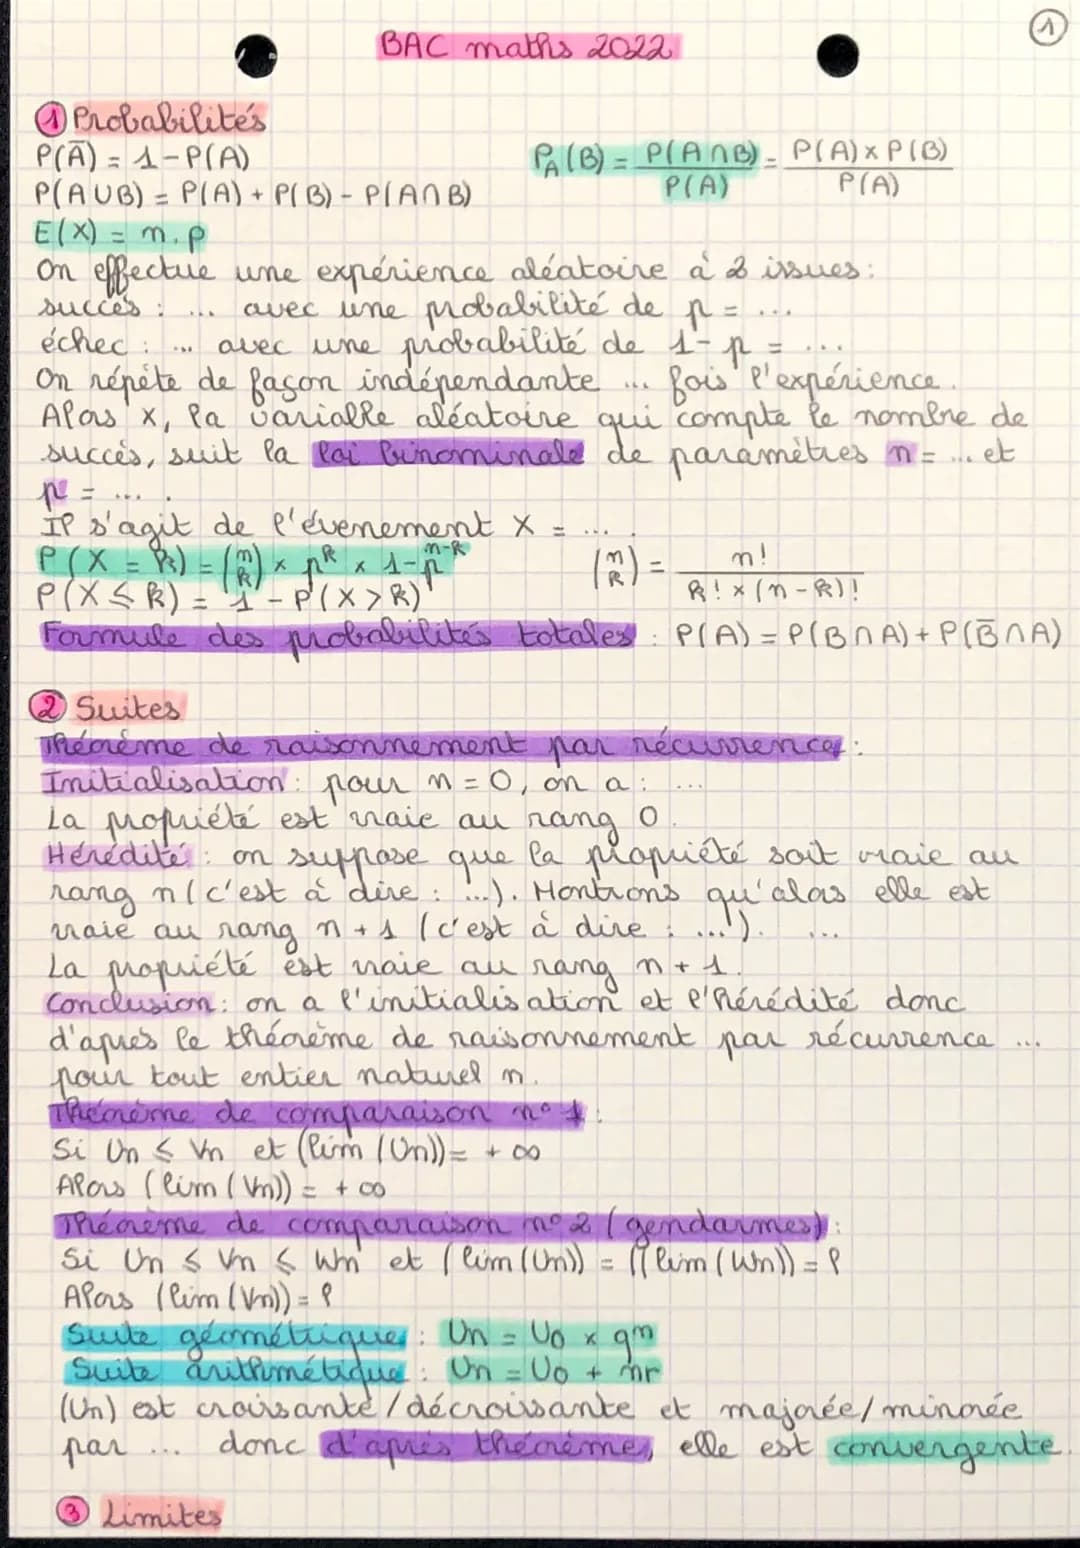 1
BAC maths 2022
① Probabilités
P(Ā) = 1-P(A)
P(A∪B) = P(A) + P(B) - P(A∩B)
P_A(B) = P(A∩B)/P(A) = P(A) × P(B)/P(A)
E(X) = n.p
On effectue une expérience aléatoire à 2 issues:
succès : ... avec une probabilité de p = ...
échec : ... avec une probabilité de 1-p = ...
On répète de façon indépendante ... fois l'expérience.
Alors X, la variable aléatoire qui compte le nombre de
succès, suit la loi binominale de paramètres n = ... et
p = ... .
Il s'agit de l'évenement X = ... .
P(X = k) = (n k) × p^k × 1-p^n-k
(n k) = n!/k! × (n-k)!
P(X ⩽ k) = 1 - P(X > k)
Formule des probabilités totales : P(A) = P(B∩A) + P(B̄∩A)
② Suites
Théorème de raisonnement par récurrence :
Initialisation : pour n = 0, on a : ...
La propriété est vraie au rang 0.
Hérédité : on suppose que la propriété soit vraie au
rang n (c'est à dire : ...). Montrons qu'alors elle est
vraie au rang n + 1 (c'est à dire : ...). ...
La propriété est vraie au rang n + 1.
Conclusion : on a l'initialisation et l'hérédité donc
d'après le théorème de raisonnement par récurrence ...
pour tout entier naturel n.
Théorème de comparaison n° 1 :
Si Un ⩽ Vn et (lim (Un)) = + ∞
Alors (lim (Vn)) = + ∞
Théorème de comparaison n° 2 (gendarmes) :
Si Un ⩽ Vn ⩽ Wn et (lim (Un)) = ((lim (Wn)) = l
Alors (lim (Vn)) = l
Suite géométrique : Un = U0 × q^n
Suite arithmétique : Un = U0 + nr
(Un) est croissante / décroissante et majorée / minorée
par ... donc d'après théorème, elle est convergente.
③ Limites